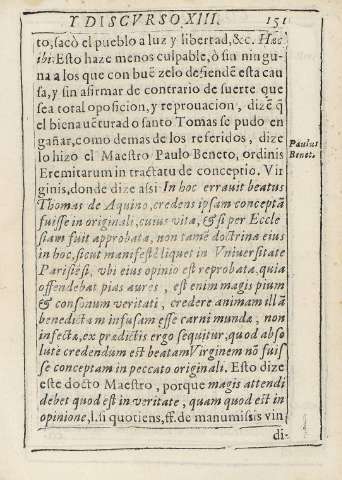 Y DISCVRSO XIII. 151
to, sacò el pueblo a luz y libertad, &c. Hæc
ibi. Esto haze menos culpable, ò sin ningu-
na a los que con buẽ zelo defiendẽ esta cau
sa, y sin afirmar de contrario de suerte que
sea total oposicion, y reprouacion, dizẽ q̃
el bienauẽturado santo Tomas se pudo en
gañar, como demas de los referidos, dize
lo hizo el Maestro Paulo Beneto, ordinis
Paulus
Benet.
Eremitarum in tractatu de conceptio. Vir
ginis, donde dize assi In hoc errauit beatus
Thomas de Aquino, credens ipsam conceptã
fuisse in originali, cuius vita, & si per Eccle
siam fuit approbata, non tamẽ doctrina eius
in hoc, sicut manifestè liquet in Vniuersitate
Parisiẽsi, vbi eius opinio est reprobata. quia
offendebat pias aures, est enim magis pium
& consonum veritati, credere animam illã
benedictam infusam esse carni mundæ, non
infecta, ex prædictis ergo sequitur, quod abso
lutè credendum est beatam Virginem nõ fuis
se conceptam in peccato originali. Esto dize
este docto Maestro, porque magis attendi
debet quod est in veritate, quam quod est in
opinione, l. si quotiens, ff. de manumissis vin
di-